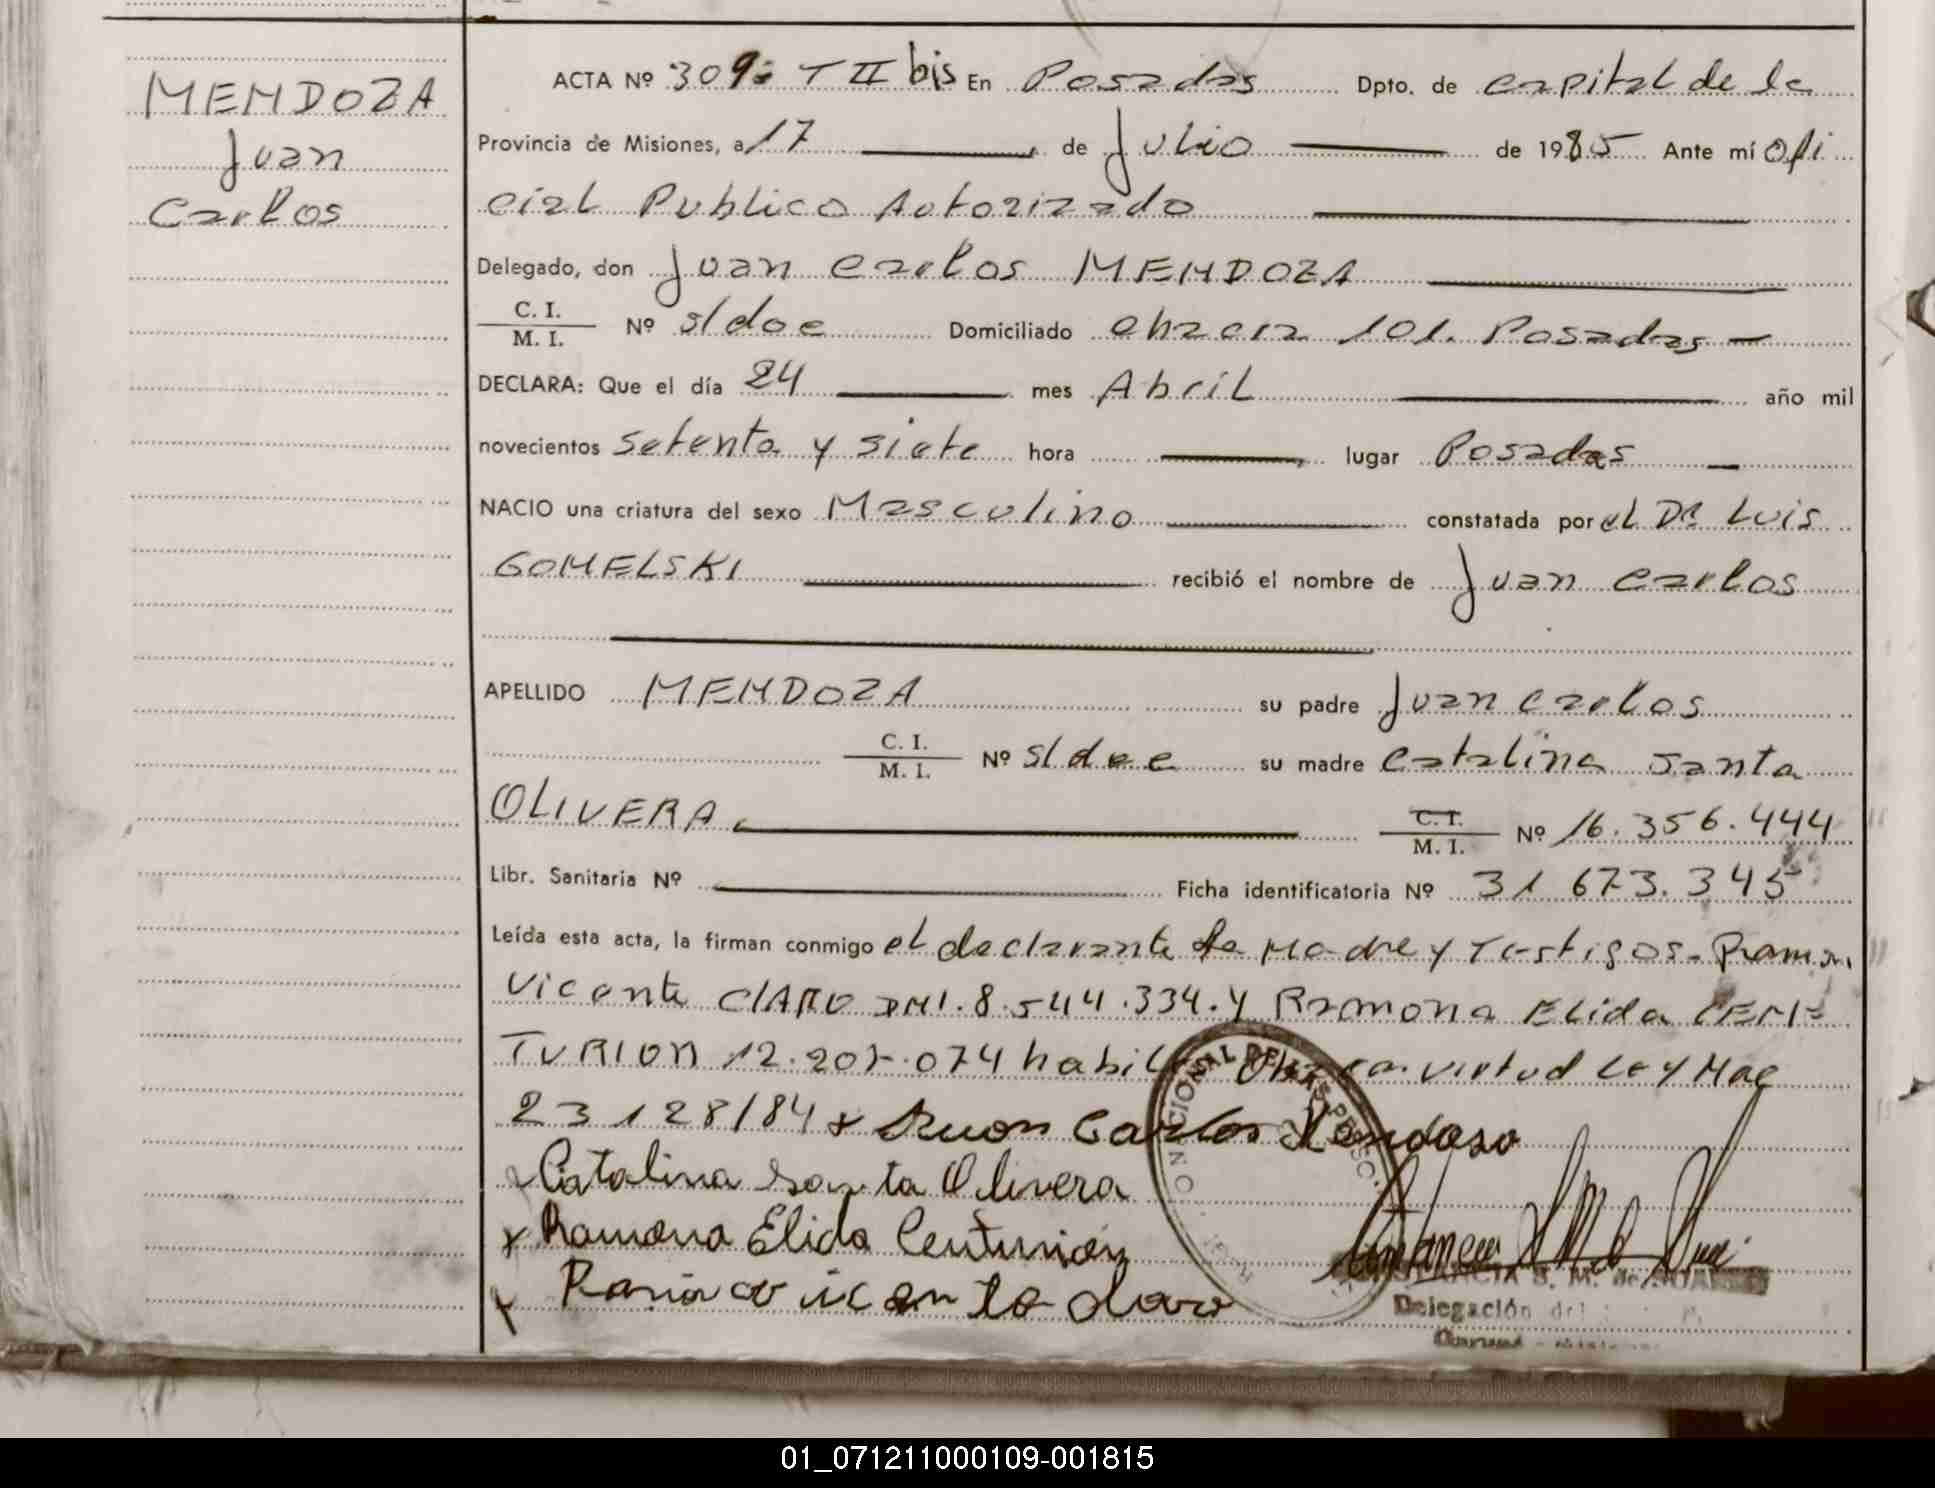 MENDOZA
Juan
Carlos
ACTA Nº 309 T II bis En Posadas Dpto. de capital de la
Provincia de Misiones, a 17 de Julio de 1985 Ante mí Ofi
cial Publico Autorizado
Delegado, don Juan Carlos MENDOZA
C. I.
M. I. Nº s/doc Domiciliado chacra 101. Posadas
DECLARA: Que el día 24 mes Abril año mil
novecientos setenta y siete hora lugar Posadas
NACIO una criatura del sexo Masculino constatada por el Dr Luis
GOMELSKI recibió el nombre de Juan Carlos
APELLIDO MENDOZA su padre Juan Carlos
C. I.
M. I. Nº s/doc su madre Catalina Santa
OLIVERA C. I.
M. I. Nº 16.356.444
Libr. Sanitaria Nº Ficha identificatoria Nº 31 673.345
Leída esta acta, la firman conmigo el declarante la Madre y Testigos. Ramon
Vicente CLARO DNI. 8.544.334. y Ramona Elida CEN-
TURION 12.207.074 virtud Ley Nac
23128/84 x Juan Carlos Mendoza
Catalina Santa Olivera
x Ramona Elida Centurión
x Ramon vicente claro
Delegación del
01_071211000109-001815